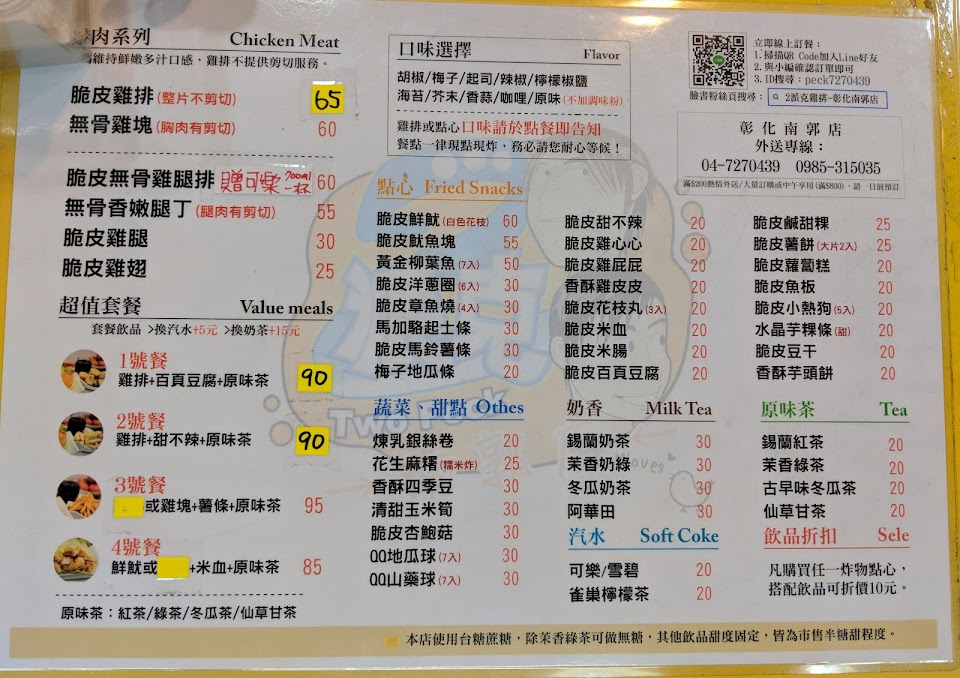 肉系列 Chicken Meat
維持鮮嫩多汁口感，雞排不提供剪切服務。
脆皮雞排(整片不剪切) 65
無骨雞塊(胸肉有剪切) 60
脆皮無骨雞腿排 贈可樂700ml一杯 60
無骨香嫩腿丁(腿肉有剪切) 55
脆皮雞腿 30
脆皮雞翅 25
超值套餐 Value meals
套餐飲品 >換汽水+5元 >換奶茶+15元
1號餐
雞排+百頁豆腐+原味茶 90
2號餐
雞排+甜不辣+原味茶 90
3號餐
或雞塊+薯條+原味茶 95
4號餐
鮮魷或 +米血+原味茶 85
原味茶：紅茶/綠茶/冬瓜茶/仙草甘茶
口味選擇 Flavor
胡椒/梅子/起司/辣椒/檸檬椒鹽
海苔/芥末/香蒜/咖哩/原味(不加調味粉)
雞排或點心口味請於點餐即告知
餐點一律現點現炸，務必請您耐心等候！
立即線上訂餐：
1.掃描QR Code加入Line好友
2.與小編確認訂單即可
3.ID搜尋：peck7270439
臉書粉絲頁搜尋： 2派克雞排-彰化南郭店
彰化南郭店
外送專線：
04-7270439 0985-315035
滿$200熱情外送/大量訂購或中午享用(滿$800)，請一日前預訂
點心 Fried Snacks
脆皮鮮魷(白色花枝) 60
脆皮魷魚塊 55
黃金柳葉魚(7入) 50
脆皮洋蔥圈(6入) 30
脆皮章魚燒(4入) 30
馬加駱起士條 30
脆皮馬鈴薯條 30
梅子地瓜條 20
脆皮甜不辣 20
脆皮雞心心 20
脆皮雞屁屁 20
香酥雞皮皮 20
脆皮花枝丸(3入) 20
脆皮米血 20
脆皮米腸 20
脆皮百頁豆腐 20
脆皮鹹甜粿 25
脆皮薯餅(大片2入) 25
脆皮蘿蔔糕 20
脆皮魚板 20
脆皮小熱狗(5入) 20
水晶芋粿條(甜) 20
脆皮豆干 20
香酥芋頭餅 20
蔬菜、甜點 Othes
煉乳銀絲卷 20
花生麻糬(糯米炸) 25
香酥四季豆 30
清甜玉米筍 30
脆皮杏鮑菇 30
QQ地瓜球(7入) 30
QQ山藥球(7入) 30
奶香 Milk Tea
錫蘭奶茶 30
茉香奶綠 30
冬瓜奶茶 30
阿華田 30
汽水 Soft Coke
可樂/雪碧 20
雀巢檸檬茶 20
原味茶 Tea
錫蘭紅茶 20
茉香綠茶 20
古早味冬瓜茶 20
仙草甘茶 20
飲品折扣 Sele
凡購買任一炸物點心，
搭配飲品可折價10元。
Two Peck
本店使用台糖蔗糖，除茉香綠茶可做無糖，其他飲品甜度固定，皆為市售半糖甜程度。